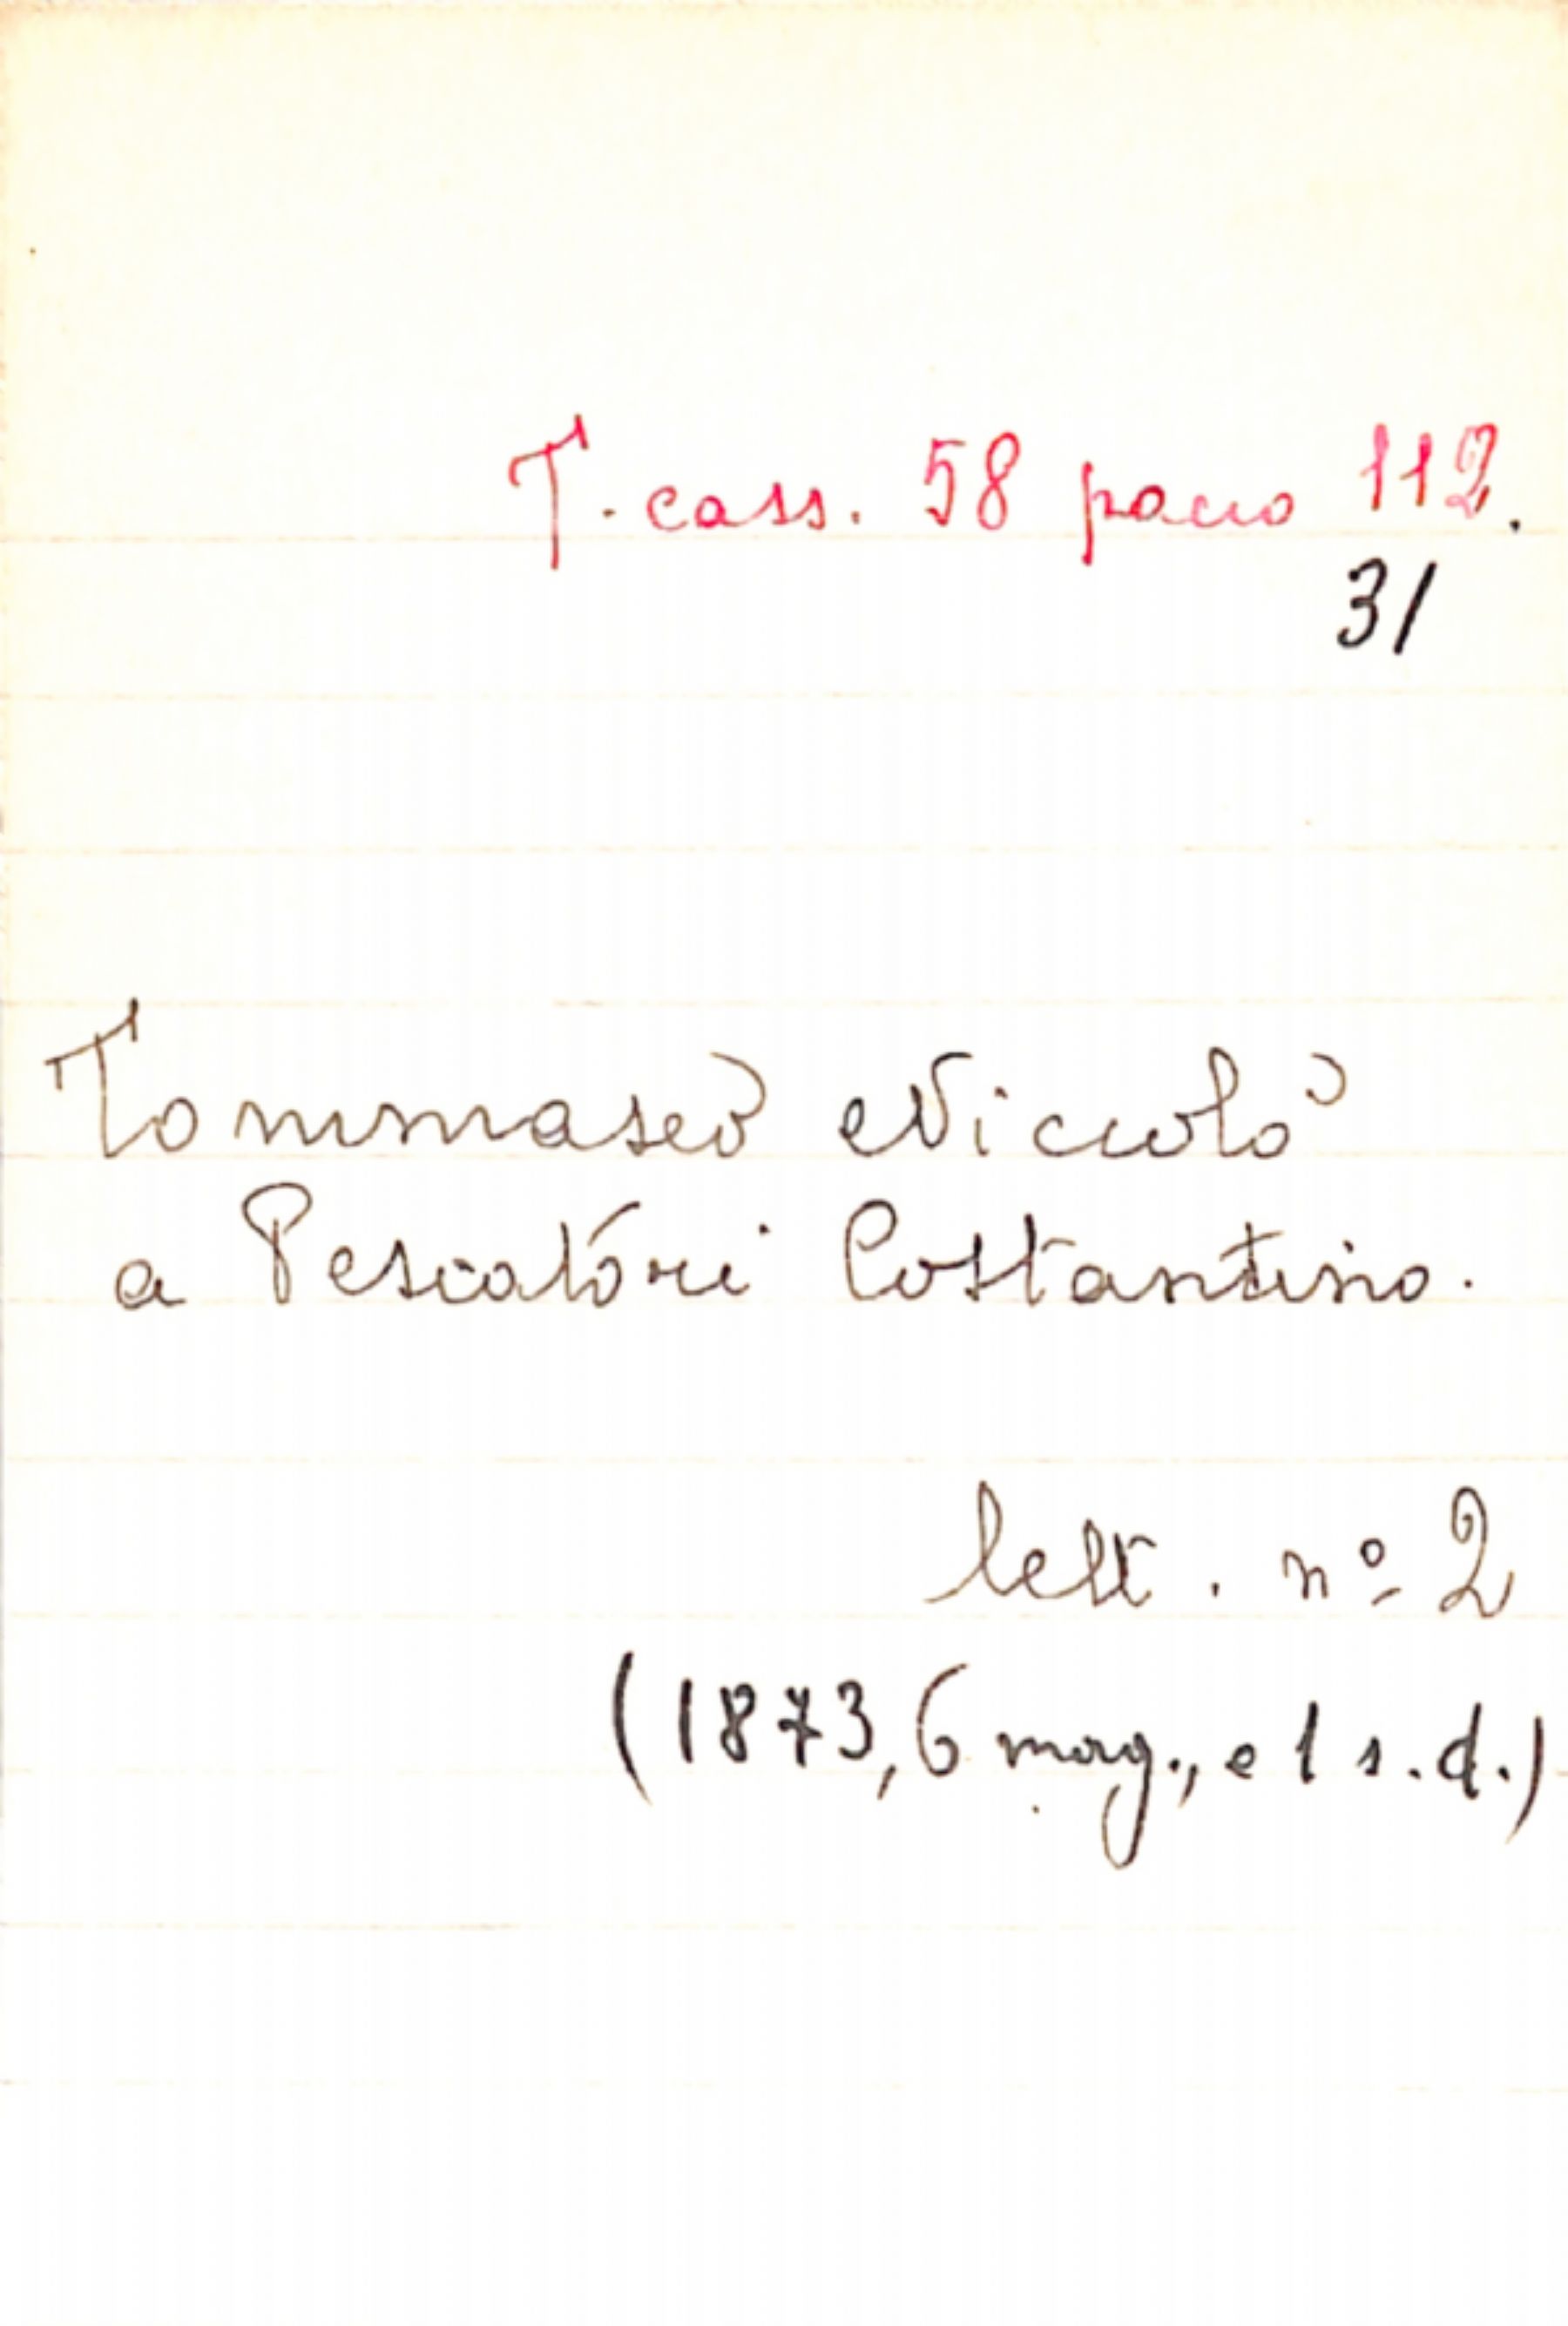 T. cass. 58 pacco 112.
31
Tommaseo Niccolò
a Pescatori Costantino.
lett. nº 2
(1873, 6 mag., e 1 s.d.)